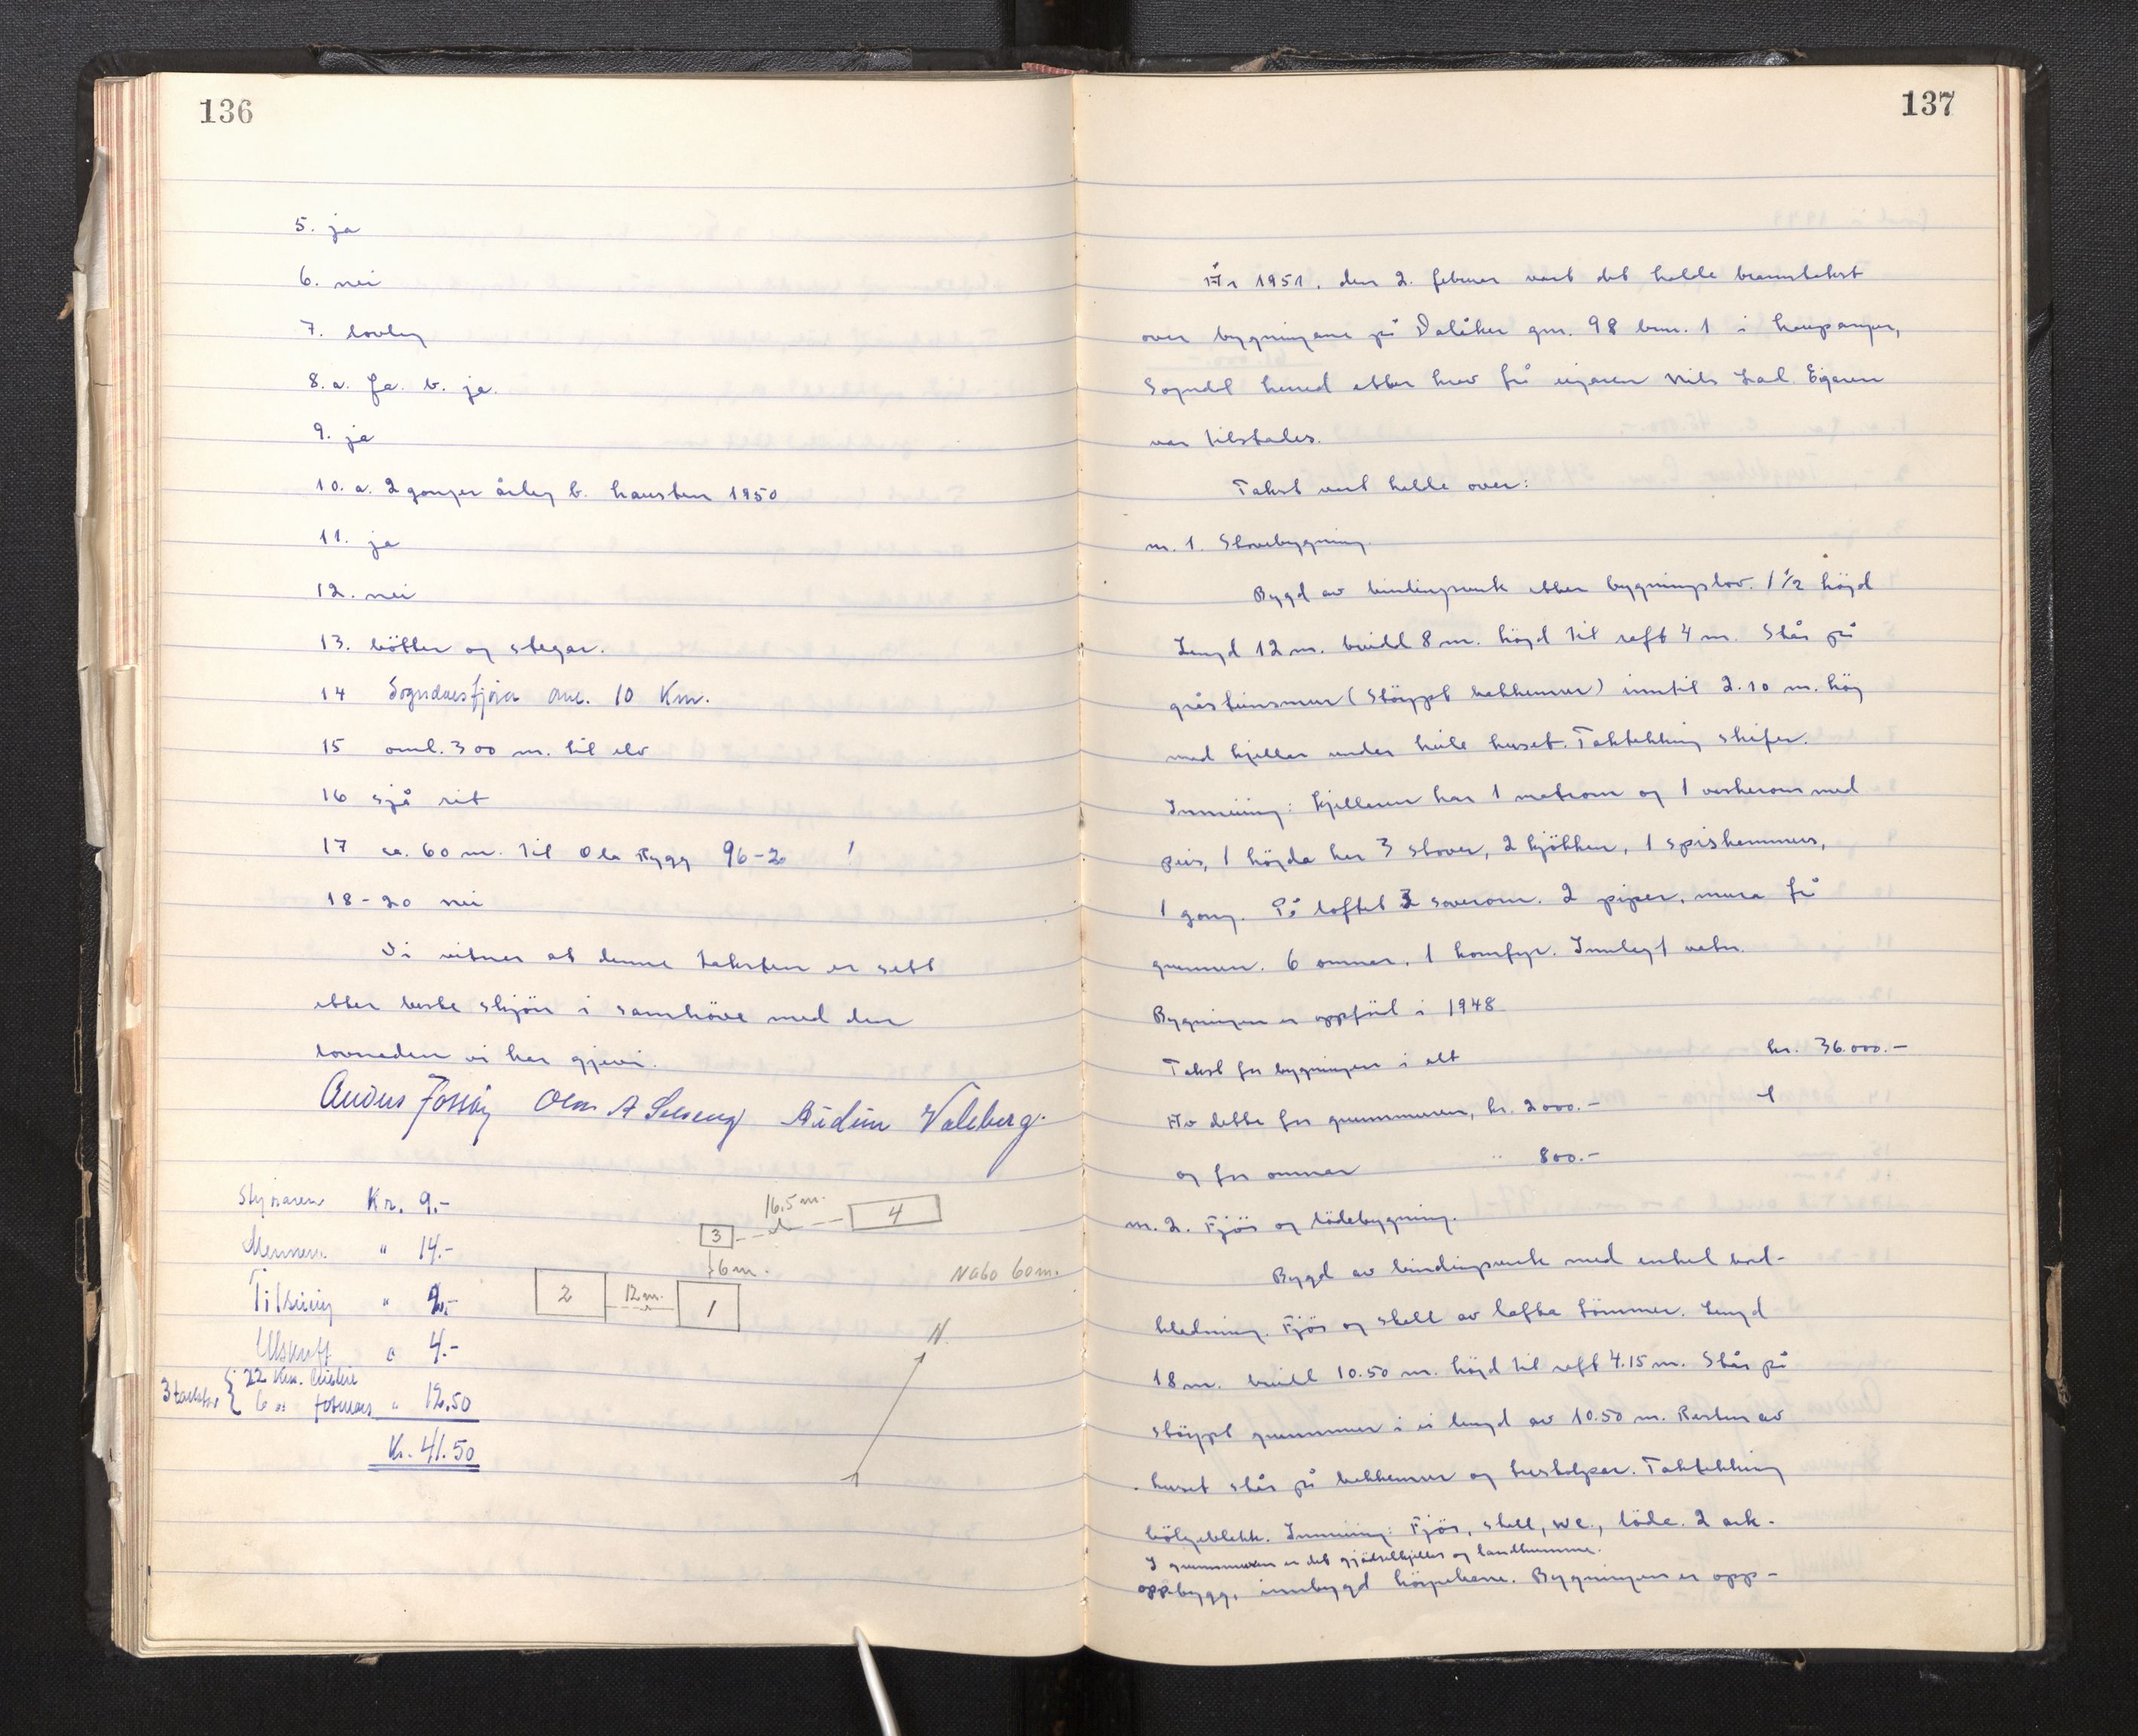 136
5. ja
6. nei
7. lovleg
8. a. Ja. b. ja.
9. ja
10. a. 2 gonger årleg b. hausten 1950
11. ja
12. nei
13. bötter og stegar.
14 Sogndalsfjøra oml. 10 Km.
15 oml. 300 m. til elv
16 sjå rit
17 ca. 60 m. til Ola Rygg 96-20 !
18-20 nei
Vi vitner at denne taksten er sett
etter beste skjön i samhöve med den
lovnaden vi har gjevi.
Olav A Selseng Audun Valeberg.
Styraren Kr. 9.-
Mennene " 14.-
Tilsieing " 2.-
Utskrift " 4.-
3 takster { 22 Km.
6 " " 12,50
Kr. 41.50
16.5 m.
4
3
6 m.
Nabo 60 m.
2
12 m.
1
N.
137
År 1951, den 2. februar vart det halde branntakst
over bygningane på Dalåker gnr. 98 bnr. 1 i Kaupanger,
Sogndal herad etter krav frå eigaren Nils Lad. Eigaren
var tilstades.
Takst vart halde over:
nr. 1. Stovebygning.
Bygd av bindingsverk etter bygningslov. 1 1/2 högd
Lengd 12 m. breidd 8 m. högd til raft 4 m. Står på
gråsteinsmur (Stöypt bakkemur) inntil 2.10 m. hög
med kjellar under heile huset. Taktekking skifer.
Innreiing: Kjellaren har 1 matrom og 1 vaskerom med
peis, 1 högda har 3 stover, 2 kjökken, 1 spiskammers,
1 gang. På loftet 3 soverom. 2 piper, mura frå
grunnen. 6 omnar, 1 komfyr. Innlagt vatn.
Bygningen er oppförd i 1948
Takst for bygningen i alt kr. 36.000.-
Av dette for grunnmuren, kr. 2000.-
og for omnar " 800.-
nr. 2. Fjös og lödebygning.
Bygd av bindingsverk med enkel bord-
kledning. Fjös og stall av lafta tömmer. Lengd
18 m. breidd 10.50 m. högd til raft 4.15 m. Står på
stöypt grunnmur i ei lengd av 10.50 m. Resten av
huset står på bakkemur og trestolpar. Taktekking
bölgeblekk. Innreiing: Fjös, stall, wc., löde. 2 ark-
I grunnmuren er det gjödselkjellar og landkumme.
oppbygg, innbygd höykøyrebru. Bygningen er opp-